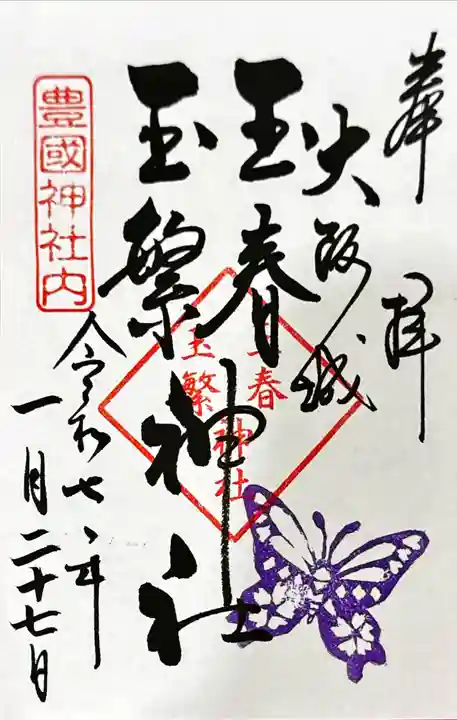 奉拝
大阪城
王春
玉繁
神社
王春
玉繁
神社
豊國神社内
令和七年
一月二十七日